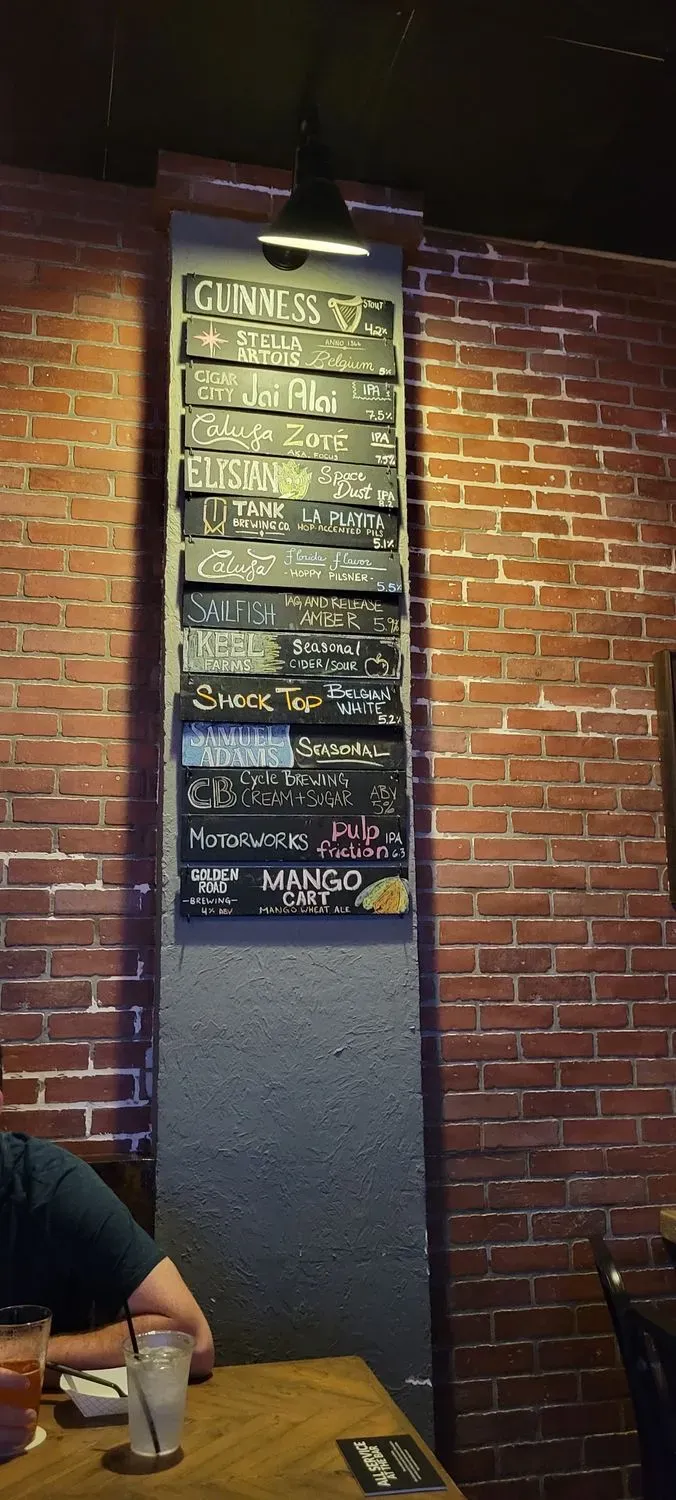 GUINNESS STOUT
4.2%
STELLA ARTOIS
ANNO 1366
Belgium
5%
CIGAR CITY
Jai Alai
IPA
7.5%
Calusa
ZOTÉ
IPA
A.K.A. FOCUS
ELYSIAN
Space Dust
IPA
8.2
TANK BREWING CO.
LA PLAYITA
HOP-ACCENTED PILS
5.1%
Calusa
Florida flavor
-HOPPY PILSNER-
5.5%
SAILFISH
TAG AND RELEASE
AMBER
KEEL FARMS
Seasonal
CIDER/SOUR
SHOCK TOP
BELGIAN WHITE
5.2%
SAMUEL ADAMS
SEASONAL
CB
Cycle BREWING
CREAM+SUGAR
5%
MOTORWORKS
pulp friction
IPA
6.3
GOLDEN ROAD
-BREWING-
4% ABV
MANGO CART
MANGO WHEAT ALE
ALL SERVICE
AT THE BAR